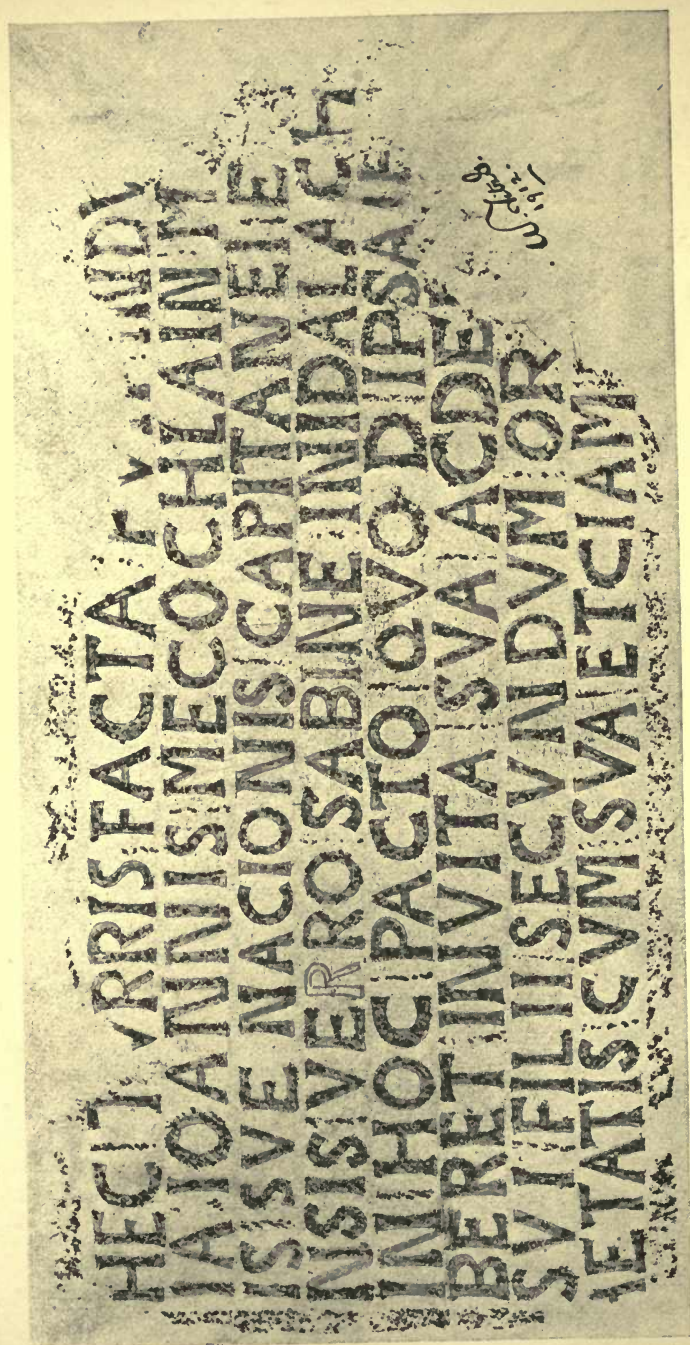 HEC RRIS FACTA
IA IOANNIS MECOCHLAIN M
IS SVE NACIONIS CAPITANEI E
NSIS VERRO SABINE INIDALACH
IN HOC PACTO QVOD IPSA
BERET IN VITA SVA AC DE
SVI FILII SECVNDVM OR
IETATIS CVM SVA ETCIAM
1912.